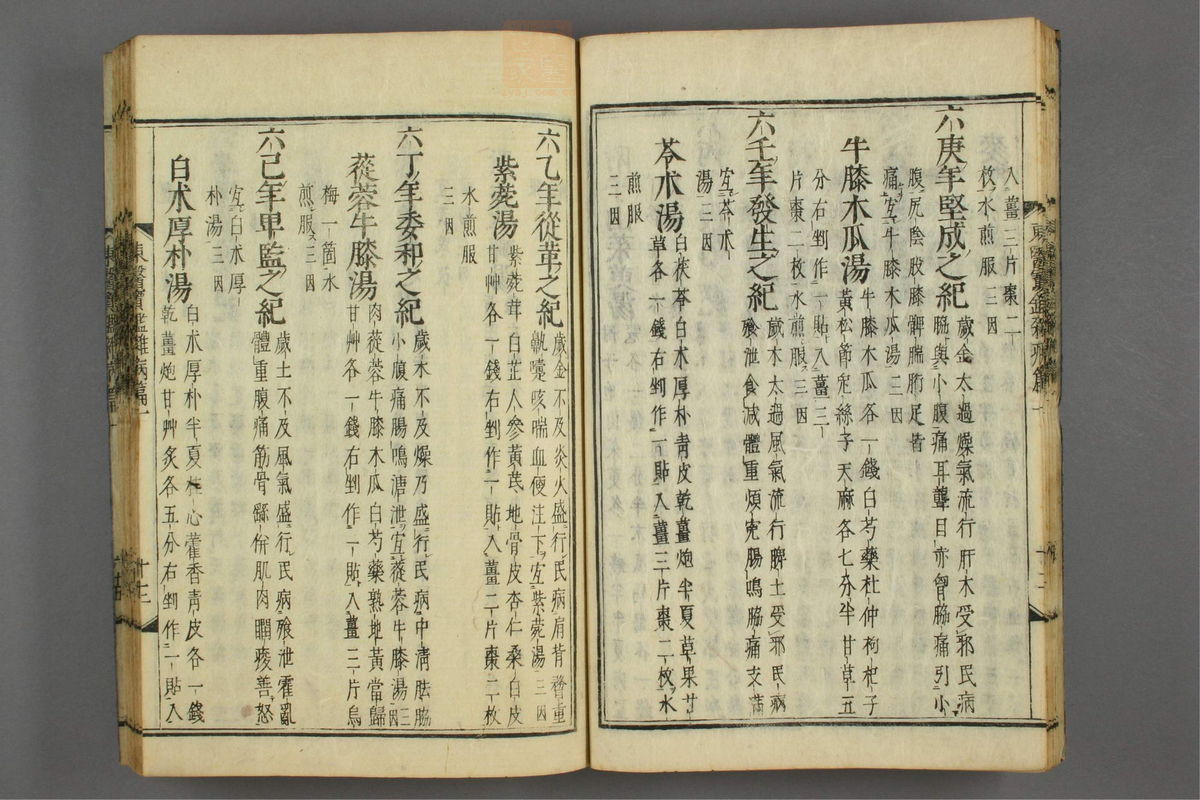 入薑三片棗二
枚水煎服三因
六庚年堅成之紀
歲金太過燥氣流行肝木受邪民病
脇與小腹痛耳聾目赤胷脇痛引小
腹尻陰股膝髀腨䯒足皆
痛宜牛膝木瓜湯三因
牛膝木瓜湯
牛膝木瓜各一錢白芍藥杜仲枸杞子
黃松節兔絲子天麻各七分半甘草五
分右剉作一貼入薑三
片棗二枚水煎服三因
六壬年發生之紀
歲木太過風氣流行脾土受邪民病
飧泄食減體重煩冤腸鳴脇痛支滿
宜苓朮
湯三因
苓朮湯
白茯苓白朮厚朴靑皮乾薑炮半夏草果甘
草各一錢右剉作一貼入薑三片棗二枚水
煎服
三因
六乙年從革之紀
歲金不及炎火盛行民病肩背瞀重
鼽嚔咳喘血便注下宜紫菀湯三因
紫菀湯
紫菀茸白芷人參黃芪地骨皮杏仁桑白皮
甘艸各一錢右剉作一貼入薑三片棗二枚
水煎服
三因
六丁年委和之紀
歲木不及燥乃盛行民病中淸胠脇
小腹痛腸鳴溏泄宜蓯蓉牛膝湯三因
蓯蓉牛膝湯
肉蓯蓉牛膝木瓜白芍藥熟地黃當歸
甘艸各一錢右剉作一貼入薑三片烏
梅一箇水
煎服三因
六己年卑監之紀
歲土不及風氣盛行民病飧泄霍亂
體重腹痛筋骨繇倂肌肉瞤酸善怒
宜白朮厚
朴湯三因
白朮厚朴湯
白朮厚朴半夏桂心藿香靑皮各一錢
乾薑炮甘艸炙各五分右剉作一貼入
東醫寶鑑雜病篇一